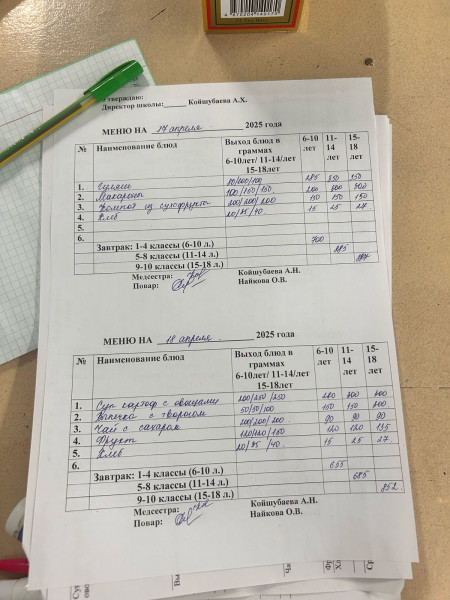 Утверждаю:
Директор школы:______ Койшубаева А.Х.
МЕНЮ НА 17 апреля 2025 года
№ Наименование блюд Выход блюд в граммах 6-10лет/ 11-14/лет 15-18лет 6-10 лет 11-14 лет 15-18 лет
1. Гуляш
2. Макароны 100/150/150
3. Компот из сухофрукта 200/200/200 150 150 150
4. Хлеб 20/35/40 15 25 27
5.
6.
Завтрак: 1-4 классы (6-10 л.) 700
5-8 классы (11-14 л.)
9-10 классы (15-18 л.)
Медсестра: Койшубаева А.Н.
Повар: Найкова О.В.
МЕНЮ НА 18 апреля 2025 года
№ Наименование блюд Выход блюд в граммах 6-10лет/ 11-14/лет 15-18лет 6-10 лет 11-14 лет 15-18 лет
1. Суп картоф с овощами 200/250/250
2. Выпечка с творогом 50/50/100 150 150
3. Чай с сахаром 200/200/200 90 90 90
4. Фрукт 120 120 135
5. Хлеб 20/35/40 15 25 27
6.
Завтрак: 1-4 классы (6-10 л.) 655
5-8 классы (11-14 л.) 685
9-10 классы (15-18 л.) 852
Медсестра: Койшубаева А.Н.
Повар: Найкова О.В.